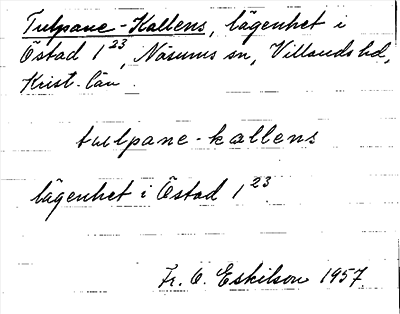 Tulpane-Kallens, lägenhet i
Östad 1²³, Näsums sn, Villands hd,
Krist. län.
tulpane-kallens
lägenhet i Östad 1²³.
Fr. O. Eskilson 1957.